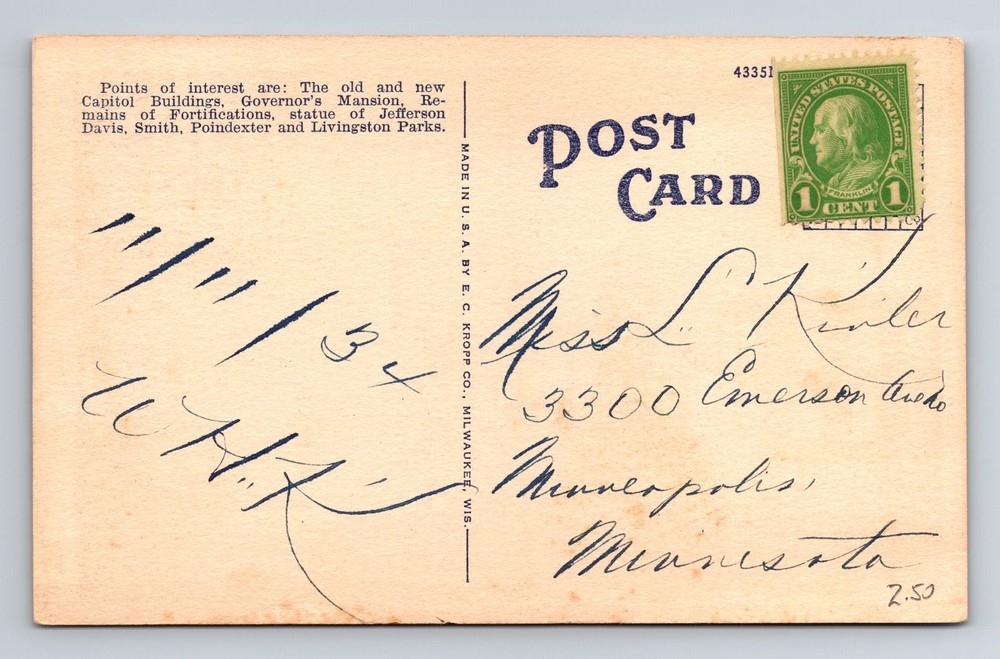 Points of interest are: The old and new
Capitol Buildings, Governor's Mansion, Re-
mains of Fortifications, statue of Jefferson
Davis, Smith, Poindexter and Livingston Parks.
11/11/34
W. H. K.
MADE IN U. S. A. BY E. C. KROPP CO., MILWAUKEE, WIS.
POST
CARD
43351
UNITED STATES POSTAGE
FRANKLIN
1 CENT 1
Miss L. Kinler
3300 Emerson Ave No
Minneapolis,
Minnesota
2.50